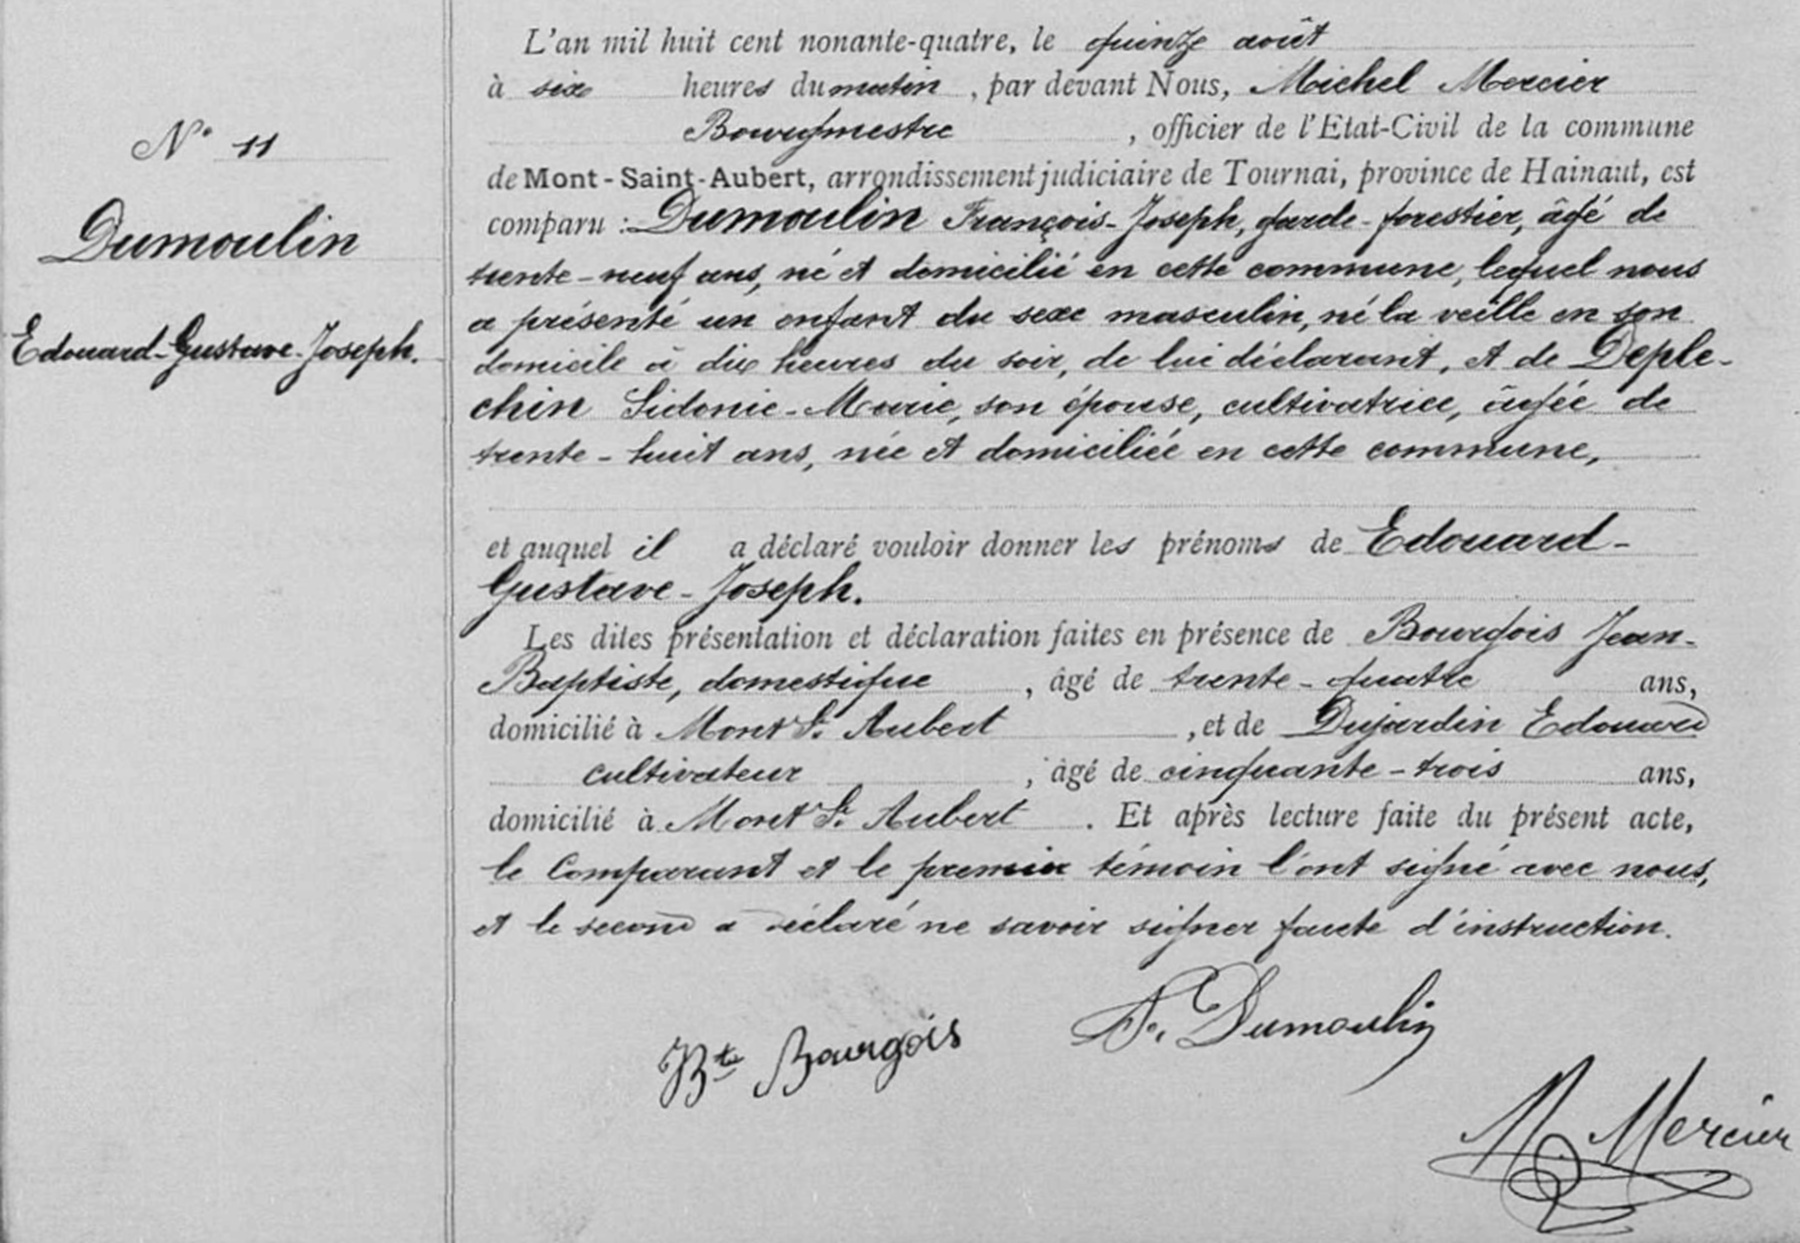 N° 11
Dumoulin
Edouard-Gustave-Joseph.
L'an mil huit cent nonante-quatre, le quinze août
à six heures du matin, par devant Nous, Michel Mercier
Bourgmestre, officier de l'Etat-Civil de la commune
de Mont-Saint-Aubert, arrondissement judiciaire de Tournai, province de Hainaut, est
comparu : Dumoulin François-Joseph, garde-forestier, âgé de
trente-neuf ans, né et domicilié en cette commune, lequel nous
a présenté un enfant du sexe masculin, né la veille en son
domicile à dix heures du soir, de lui déclarant, et de Deple-
chin Sidonie-Marie, son épouse, cultivatrice, âgée de
trente-huit ans, née et domiciliée en cette commune,
et auquel il a déclaré vouloir donner les prénoms de Edouard-
Gustave-Joseph.
Les dites présentation et déclaration faites en présence de Bourgois Jean-
Baptiste, domestique, âgé de trente-quatre ans,
domicilié à Mont St. Aubert, et de Dujardin Edouard
cultivateur, âgé de cinquante-trois ans,
domicilié à Mont St. Aubert. Et après lecture faite du présent acte,
le Comparant et le premier témoin l'ont signé avec nous,
et le second a déclaré ne savoir signer faute d'instruction.
Bte Bourgois F. Dumoulin
M Mercier